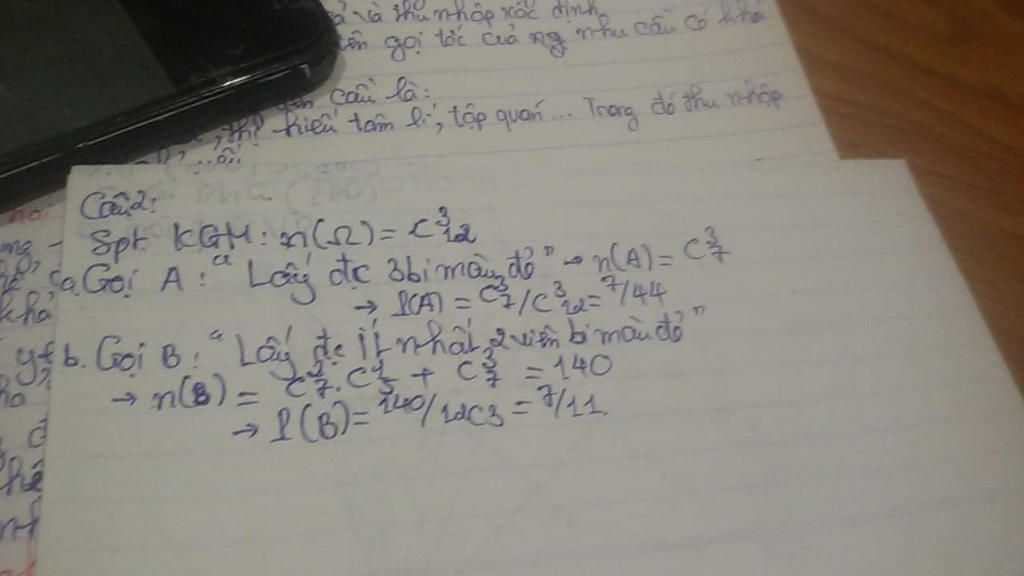 và thu nhập xác định
gọi tắc của ng nhu cầu có khả
cầu là:
thị hiếu tâm lí, tập quán... Trong đó thu nhập
Câu 2:
Spt KGM: n(Ω) = C³₁₂
a. Gọi A: "Lấy đc 3 bi màu đỏ" → n(A) = C³₇
→ P(A) = C³₇/C³₁₂ = 7/44
b. Gọi B: "Lấy đc ít nhất 2 viên bi màu đỏ"
→ n(B) = C²₇.C¹₅ + C³₇ = 140
→ P(B) = 140/12C3 = 7/11